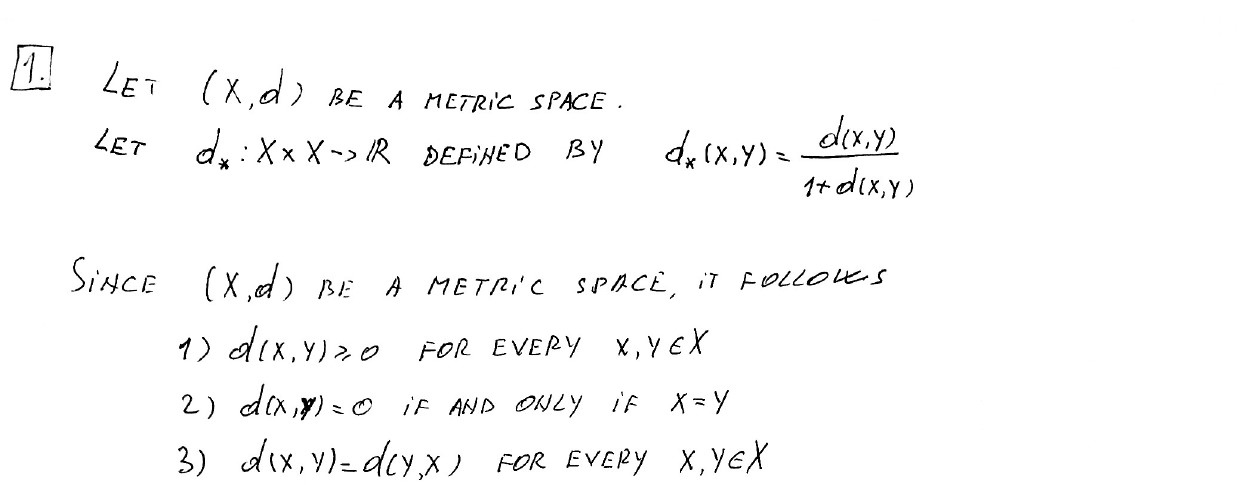 1. LET (X,d) BE A METRIC SPACE.
LET d* : X×X -> ℝ DEFINED BY d*(x,y) = d(x,y) / 1+d(x,y)
SINCE (X,d) BE A METRIC SPACE, IT FOLLOWS
1) d(x,y) ≥ 0 FOR EVERY x,y ∈ X
2) d(x,y) = 0 IF AND ONLY IF x = y
3) d(x,y) = d(y,x) FOR EVERY x,y ∈ X